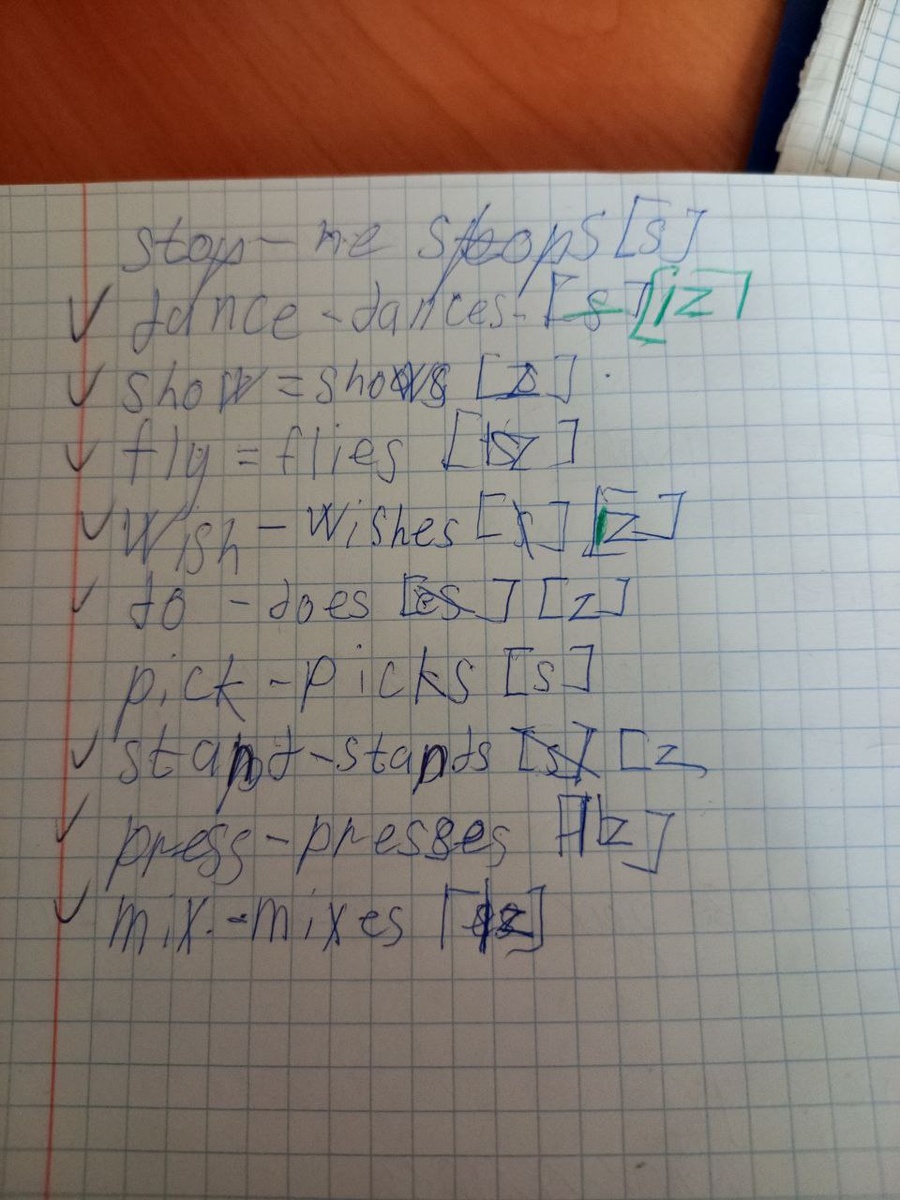 stop - he stops [s]
✓ dance - dances - [s] [iz]
✓ show = shows [z] .
✓ fly = flies [z]
✓ wish - wishes [s] [iz]
✓ do - does [es] [z]
pick - picks [s]
✓ stand - stands [s] [z
✓ press - presses [iz]
✓ mix - mixes [iz]